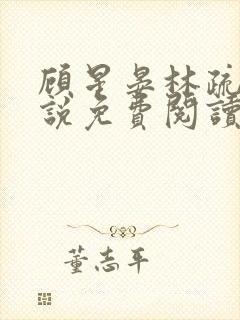 顾星晏林疏
說免費閱讀
董志平